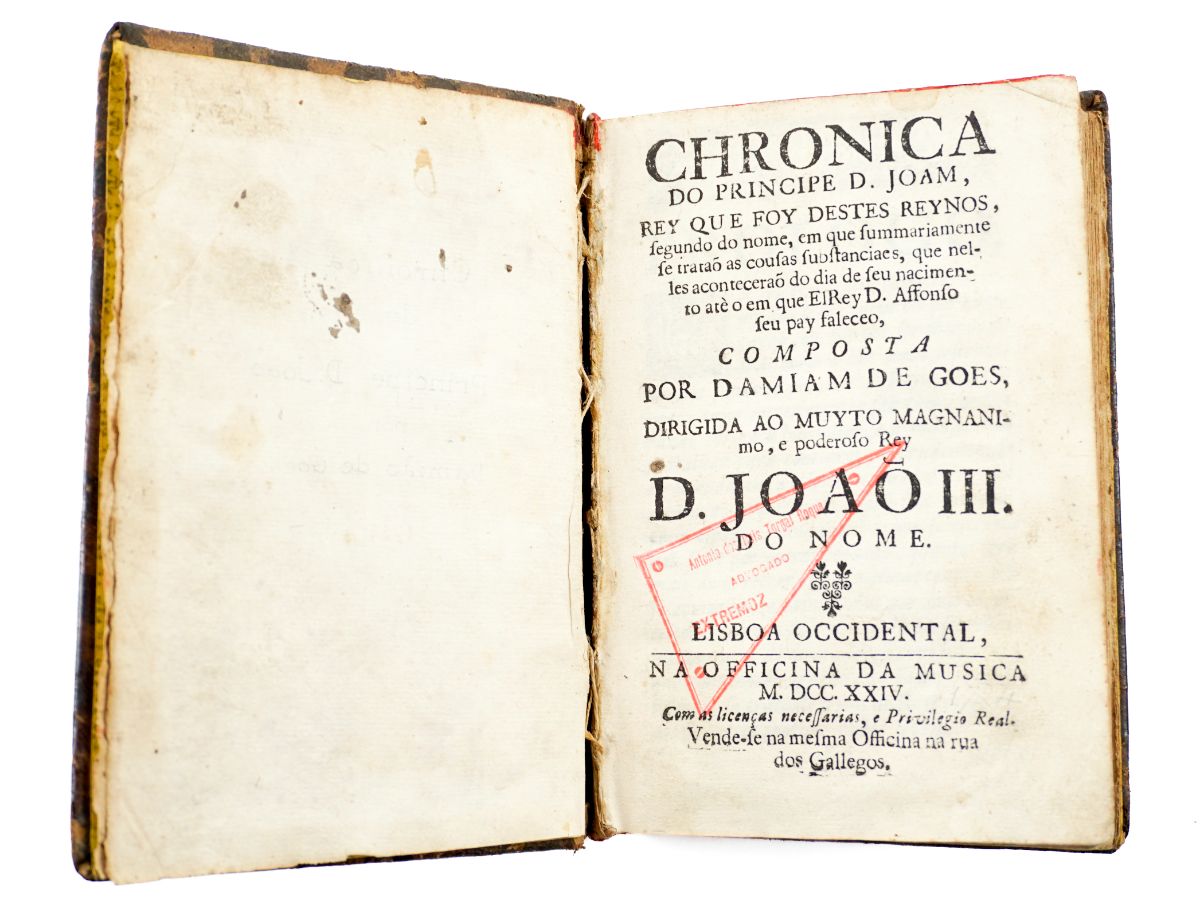 CHRONICA
DO PRINCIPE D. JOAM,
REY QUE FOY DESTES REYNOS,
ſegundo do nome, em que ſummariamente
ſe trataõ as couſas ſubſtanciaes, que nel-
les aconteceraõ do dia de ſeu nacimen-
to atè o em que ElRey D. Affonſo
ſeu pay faleceo,
COMPOSTA
POR DAMIAM DE GOES,
DIRIGIDA AO MUYTO MAGNANI-
mo, e poderoſo Rey
D. JOAÕ III.
DO NOME.
Antonio dos Reis Torgal Roque
ADVOGADO
EXTREMOZ
LISBOA OCCIDENTAL,
NA OFFICINA DA MUSICA
M. DCC. XXIV.
Com as licenças neceſſarias, e Privilegio Real.
Vende-ſe na meſma Officina na rua
dos Gallegos.